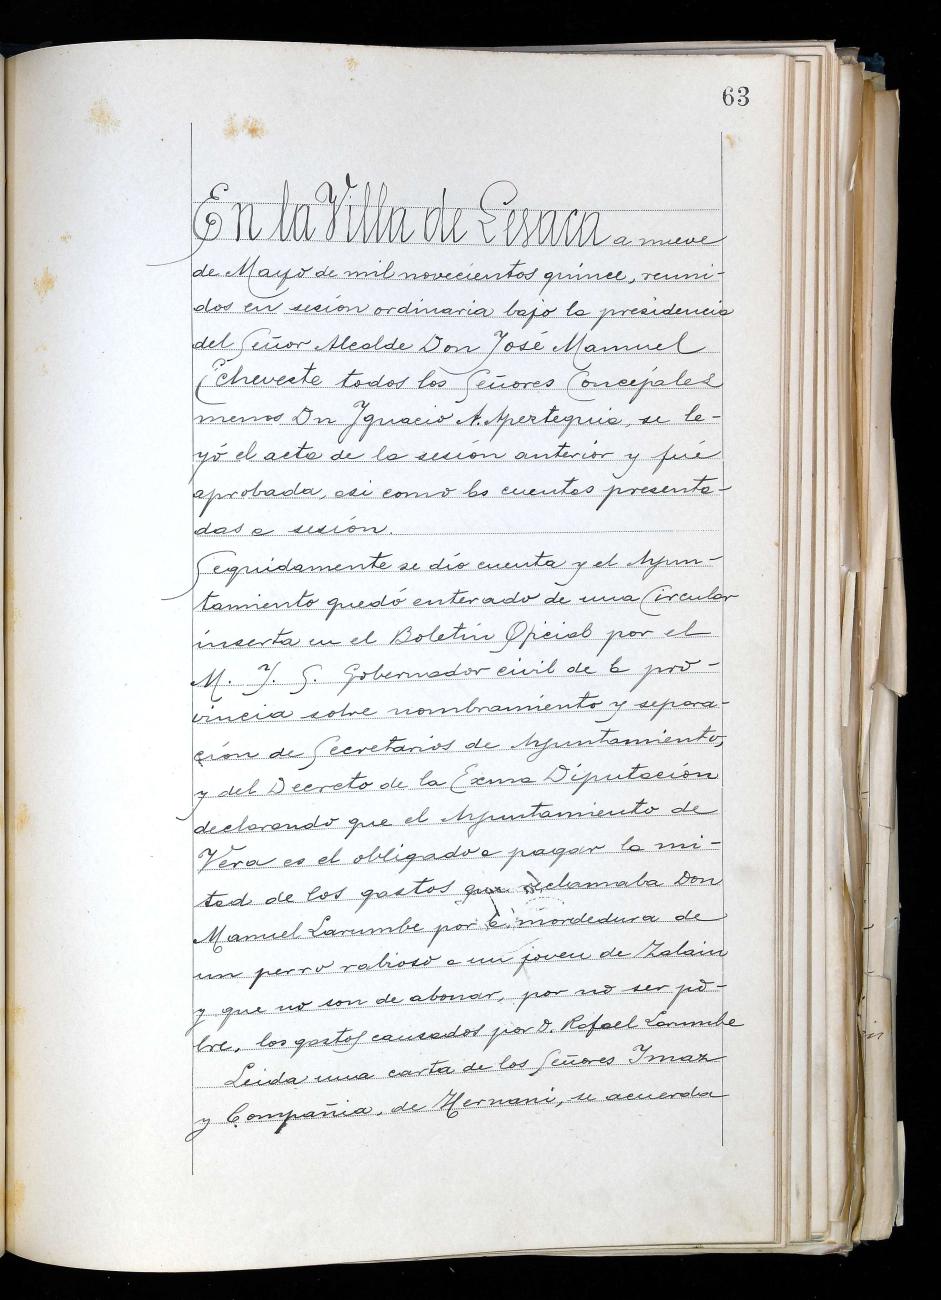 63
En la Villa de Lesaca a nueve
de Mayo de mil novecientos quince, reuni-
dos en sesión ordinaria bajo la presidencia
del Señor Alcalde Don José Manuel
Echeveste todos los Señores Concejales
menos Dn Ygnacio A. Apertequia, se le-
yó el acta de la sesión anterior y fué
aprobada, asi como las cuentas presenta-
das a sesión.
Seguidamente se dio cuenta y el Ayun-
tamiento quedó enterado de una Circular
inserta en el Boletin Oficial por el
M. Y. S. Gobernador civil de la pro-
vincia sobre nombramiento y separa-
ción de Secretarios de Ayuntamiento,
y del Decreto de la Exma Diputación
declarando que el Ayuntamiento de
Vera es el obligado a pagar la mi-
tad de los gastos que reclamaba Don
Manuel Larumbe por la mordedura de
un perro rabioso a un joven de Zalain
y que no son de abonar, por no ser po-
bre, los gastos causados por D. Rafael Larumbe
Leida una carta de los Señores Imaz
y Compañia, de Hernani, se acuerda